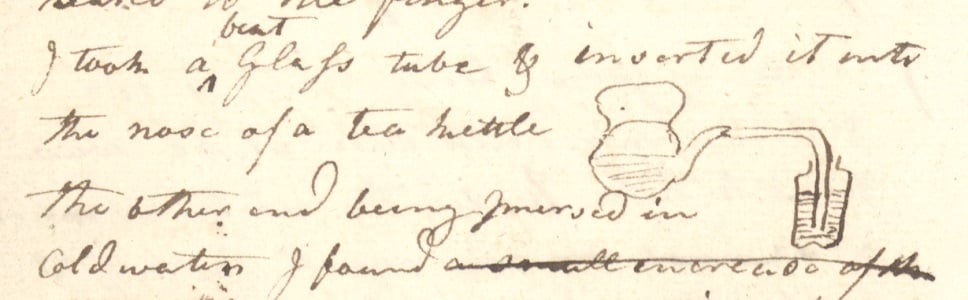 to the finger.
bent
I took a ^ Glass tube & inserted it into
the nose of a tea kettle
the other end being Jmersed in
Cold water I found a small increase of the